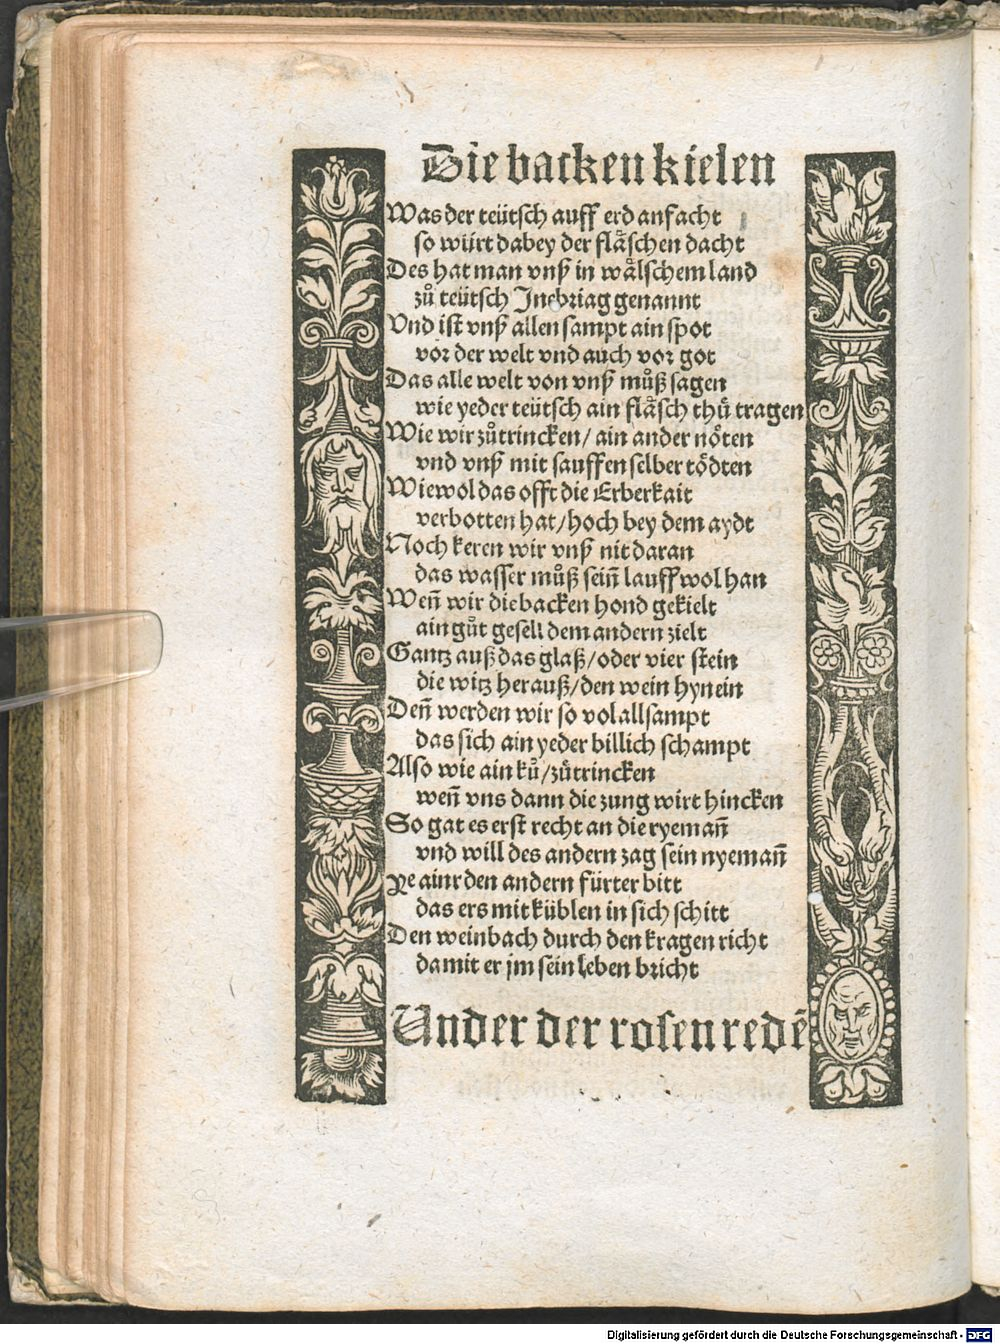 Die backen kielen
Was der teütsch auff erd anfacht
so würt dabey der fläschen dacht
Des hat man vnß in wälschem land
zů teütsch Inebriag genannt
Vnd ist vnß allen sampt ain spot
vor der welt vnd auch vor got
Das alle welt von vnß můß sagen
wie yeder teütsch ain fläsch thů tragen
Wie wir zůtrincken/ ain ander nöten
vnd vnß mit sauffen selber tödten
Wiewol das offt die Erberkait
verbotten hat/hoch bey dem aydt
Noch keren wir vnß nit daran
das wasser můß sein̄ lauff wol han
Wen̄ wir die backen hond gekielt
ain gůt gesell dem andern zielt
Gantz auß das glaß/oder vier stein
die witz herauß/den wein hynein
Den̄ werden wir so vol allsampt
das sich ain yeder billich schampt
Also wie ain ků/zůtrincken
wen̄ vns dann die zung wirt hincken
So gat es erst recht an die ryeman̄
vnd will des andern zag sein nyeman̄
Ye ainr den andern fürter bitt
das ers mit küblen in sich schitt
Den weinbach durch den kragen richt
damit er jm sein leben bricht
Under der rosen redē
Digitalisierung gefördert durch die Deutsche Forschungsgemeinschaft - DFG